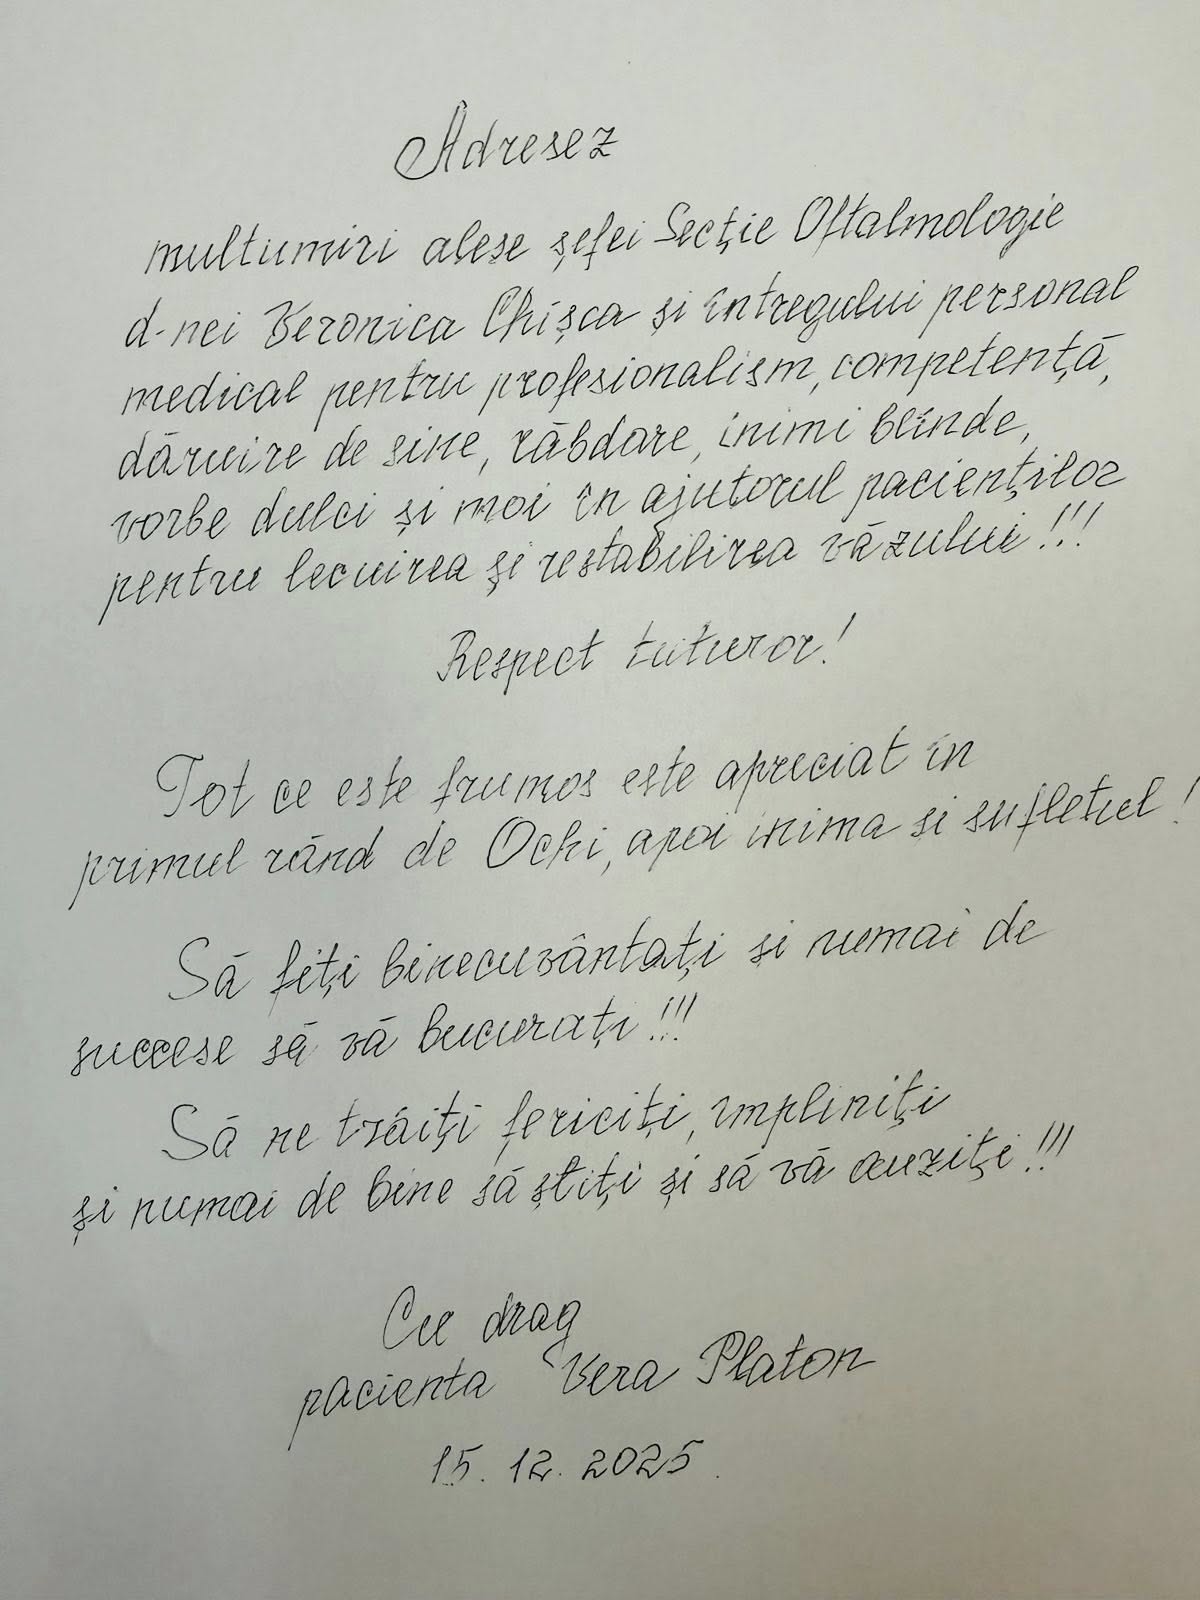 Adresez
multumiri alese șefei Secție Oftalmologie
d-nei Veronica Chișca și întregului personal
medical pentru profesionalism, competență,
dăruire de sine, răbdare, inimi blînde,
vorbe dulci și moi în ajutorul pacienților
pentru lecuirea și restabilirea văzului!!!
Respect tuturor!
Tot ce este frumos este apreciat în
primul rând de Ochi, apoi inima si sufletul!
Să fiți binecuvântați si numai de
succese să vă bucurați!!!
Să ne trăiți fericiți, împliniți
și numai de bine să știți și să vă auziți!!!
Cu drag
pacienta Vera Platon
15.12.2025.